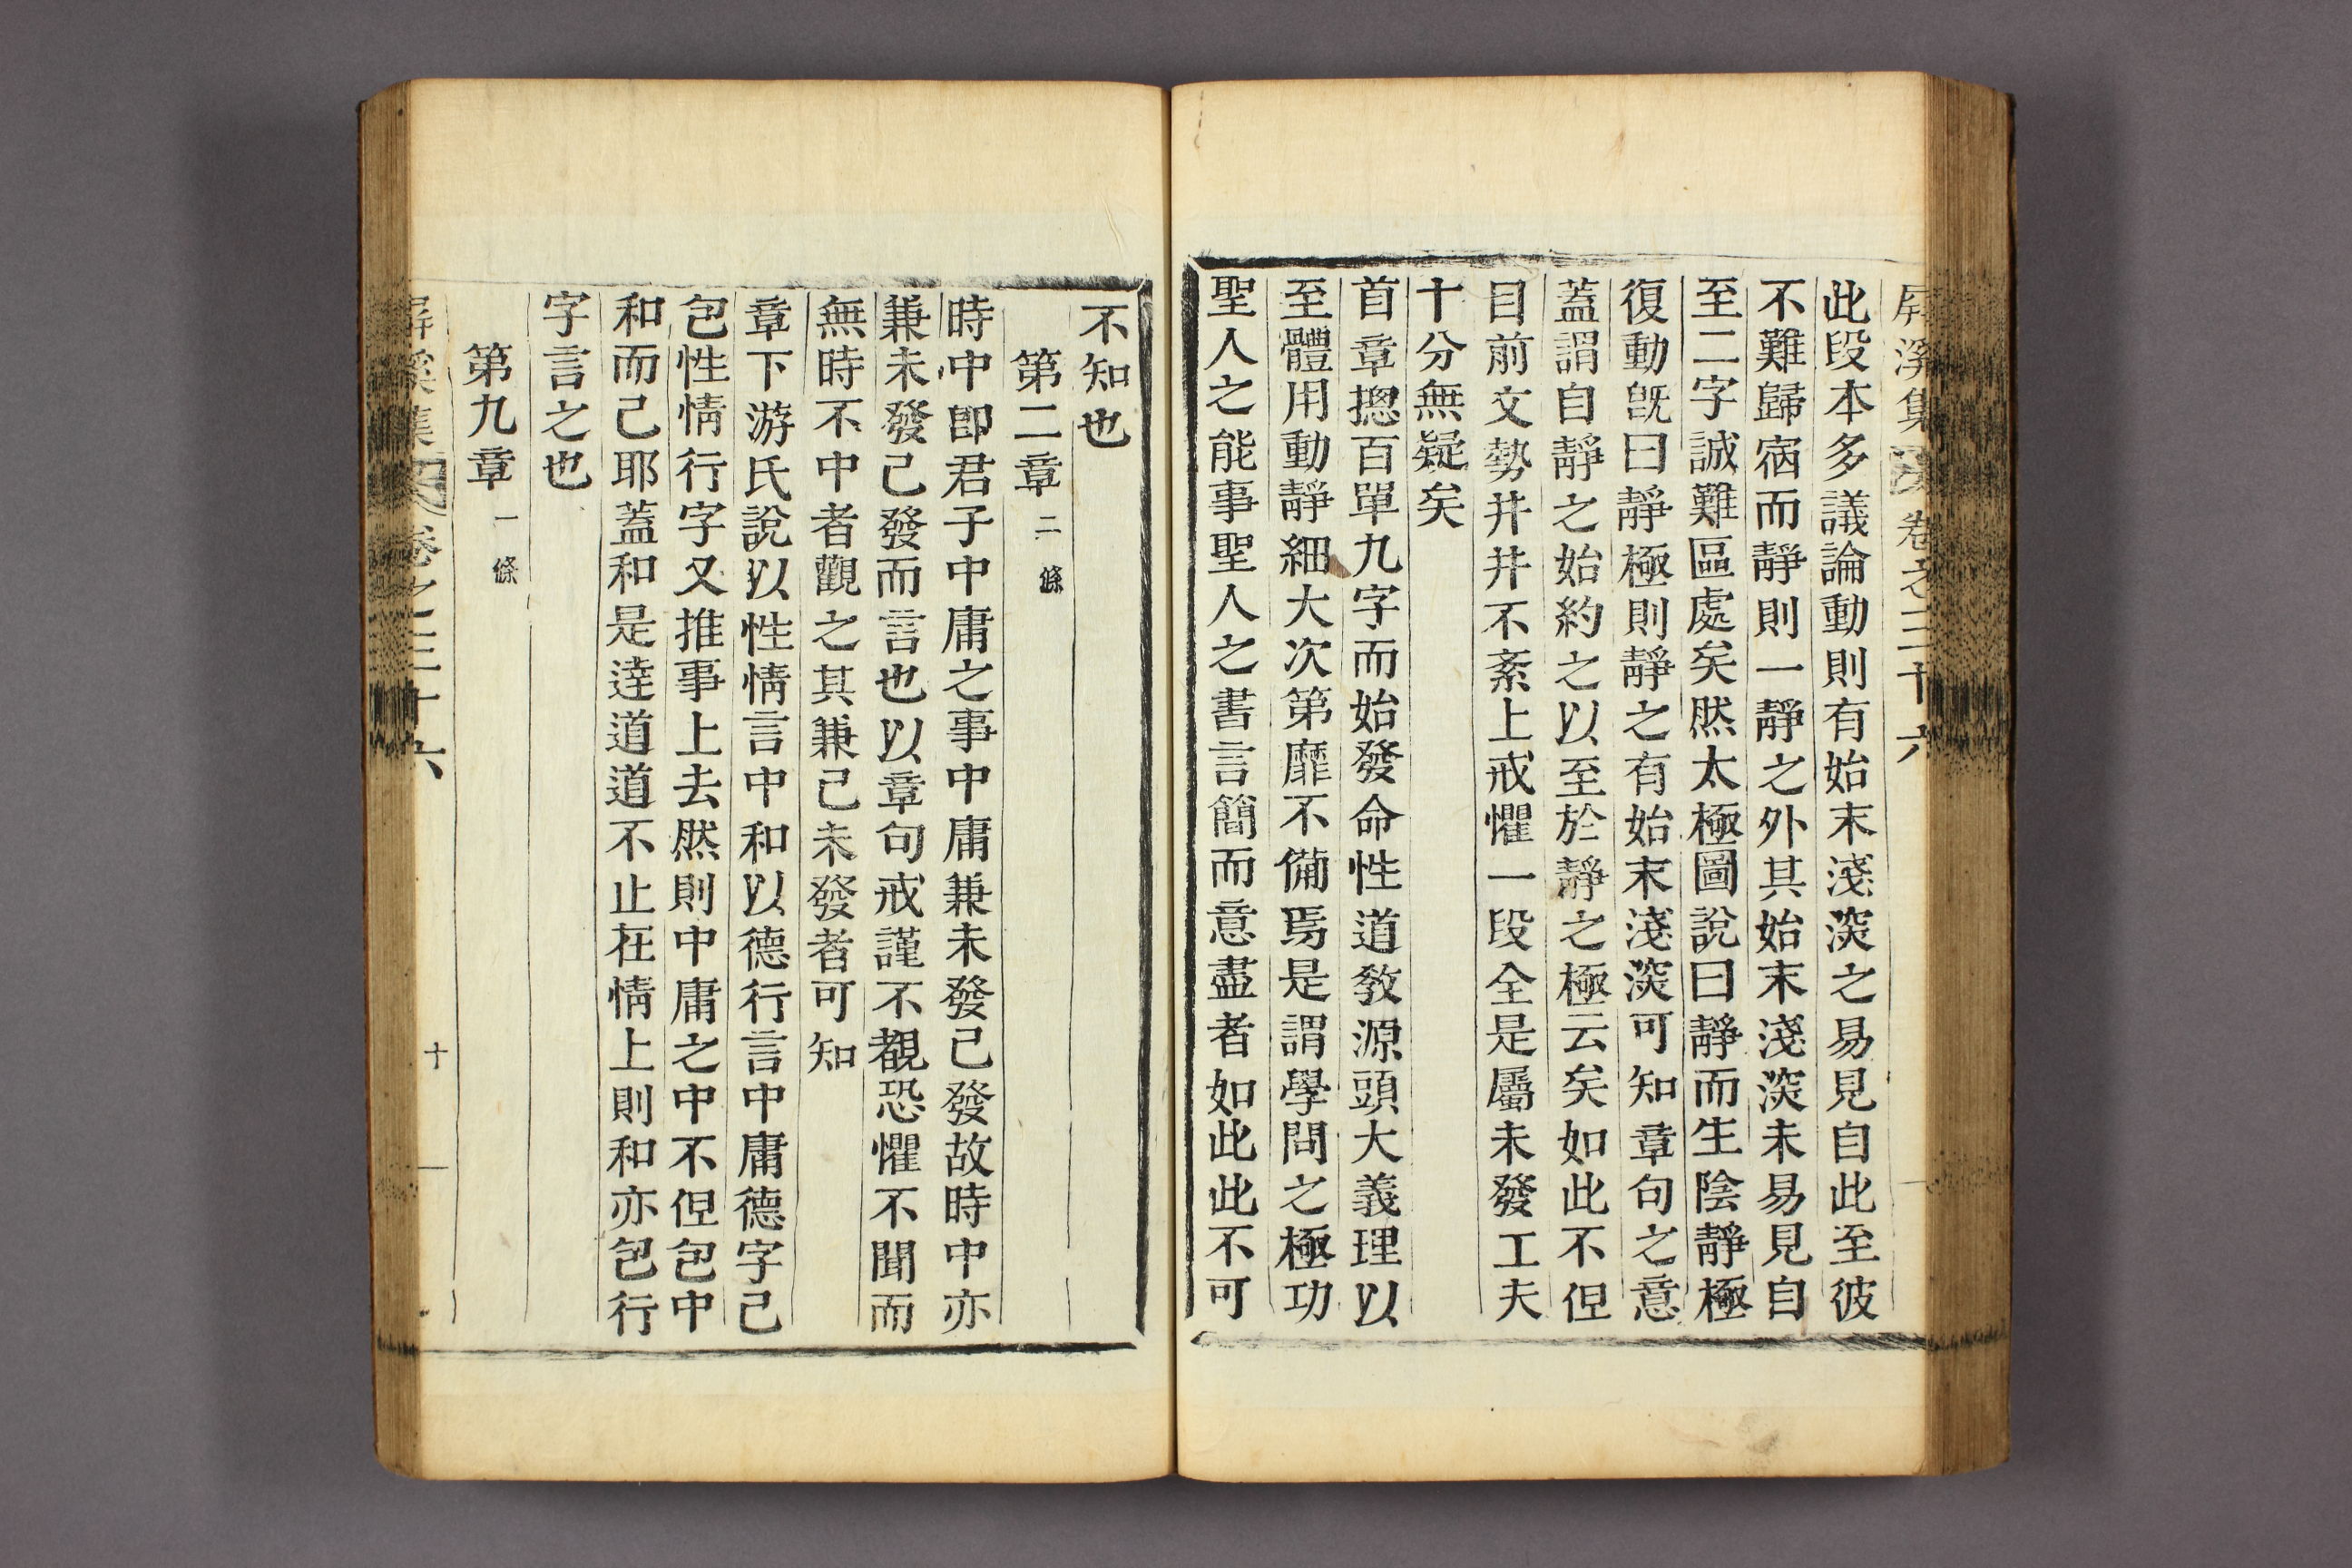 屛溪集 卷之三十六
此段本多議論動則有始末淺深之易見自此至彼
不難歸宿而靜則一靜之外其始末淺深未易見自
至二字誠難區處矣然太極圖說曰靜而生陰靜極
復動旣曰靜極則靜之有始末淺深可知章句之意
蓋謂自靜之始約之以至於靜之極云矣如此不但
目前文勢井井不紊上戒懼一段全是屬未發工夫
十分無疑矣
首章摠百單九字而始發命性道敎源頭大義理以
至體用動靜細大次第靡不備焉是謂學問之極功
聖人之能事聖人之書言簡而意盡者如此此不可
不知也
第二章 二條
時中卽君子中庸之事中庸兼未發已發故時中亦
兼未發已發而言也以章句戒謹不覩恐懼不聞而
無時不中者觀之其兼已未發者可知
章下游氏說以性情言中和以德行言中庸德字已
包性情行字又推事上去然則中庸之中不但包中
和而已耶蓋和是達道道不止在情上則和亦包行
字言之也
第九章 一條
屛溪集 卷之三十六
十